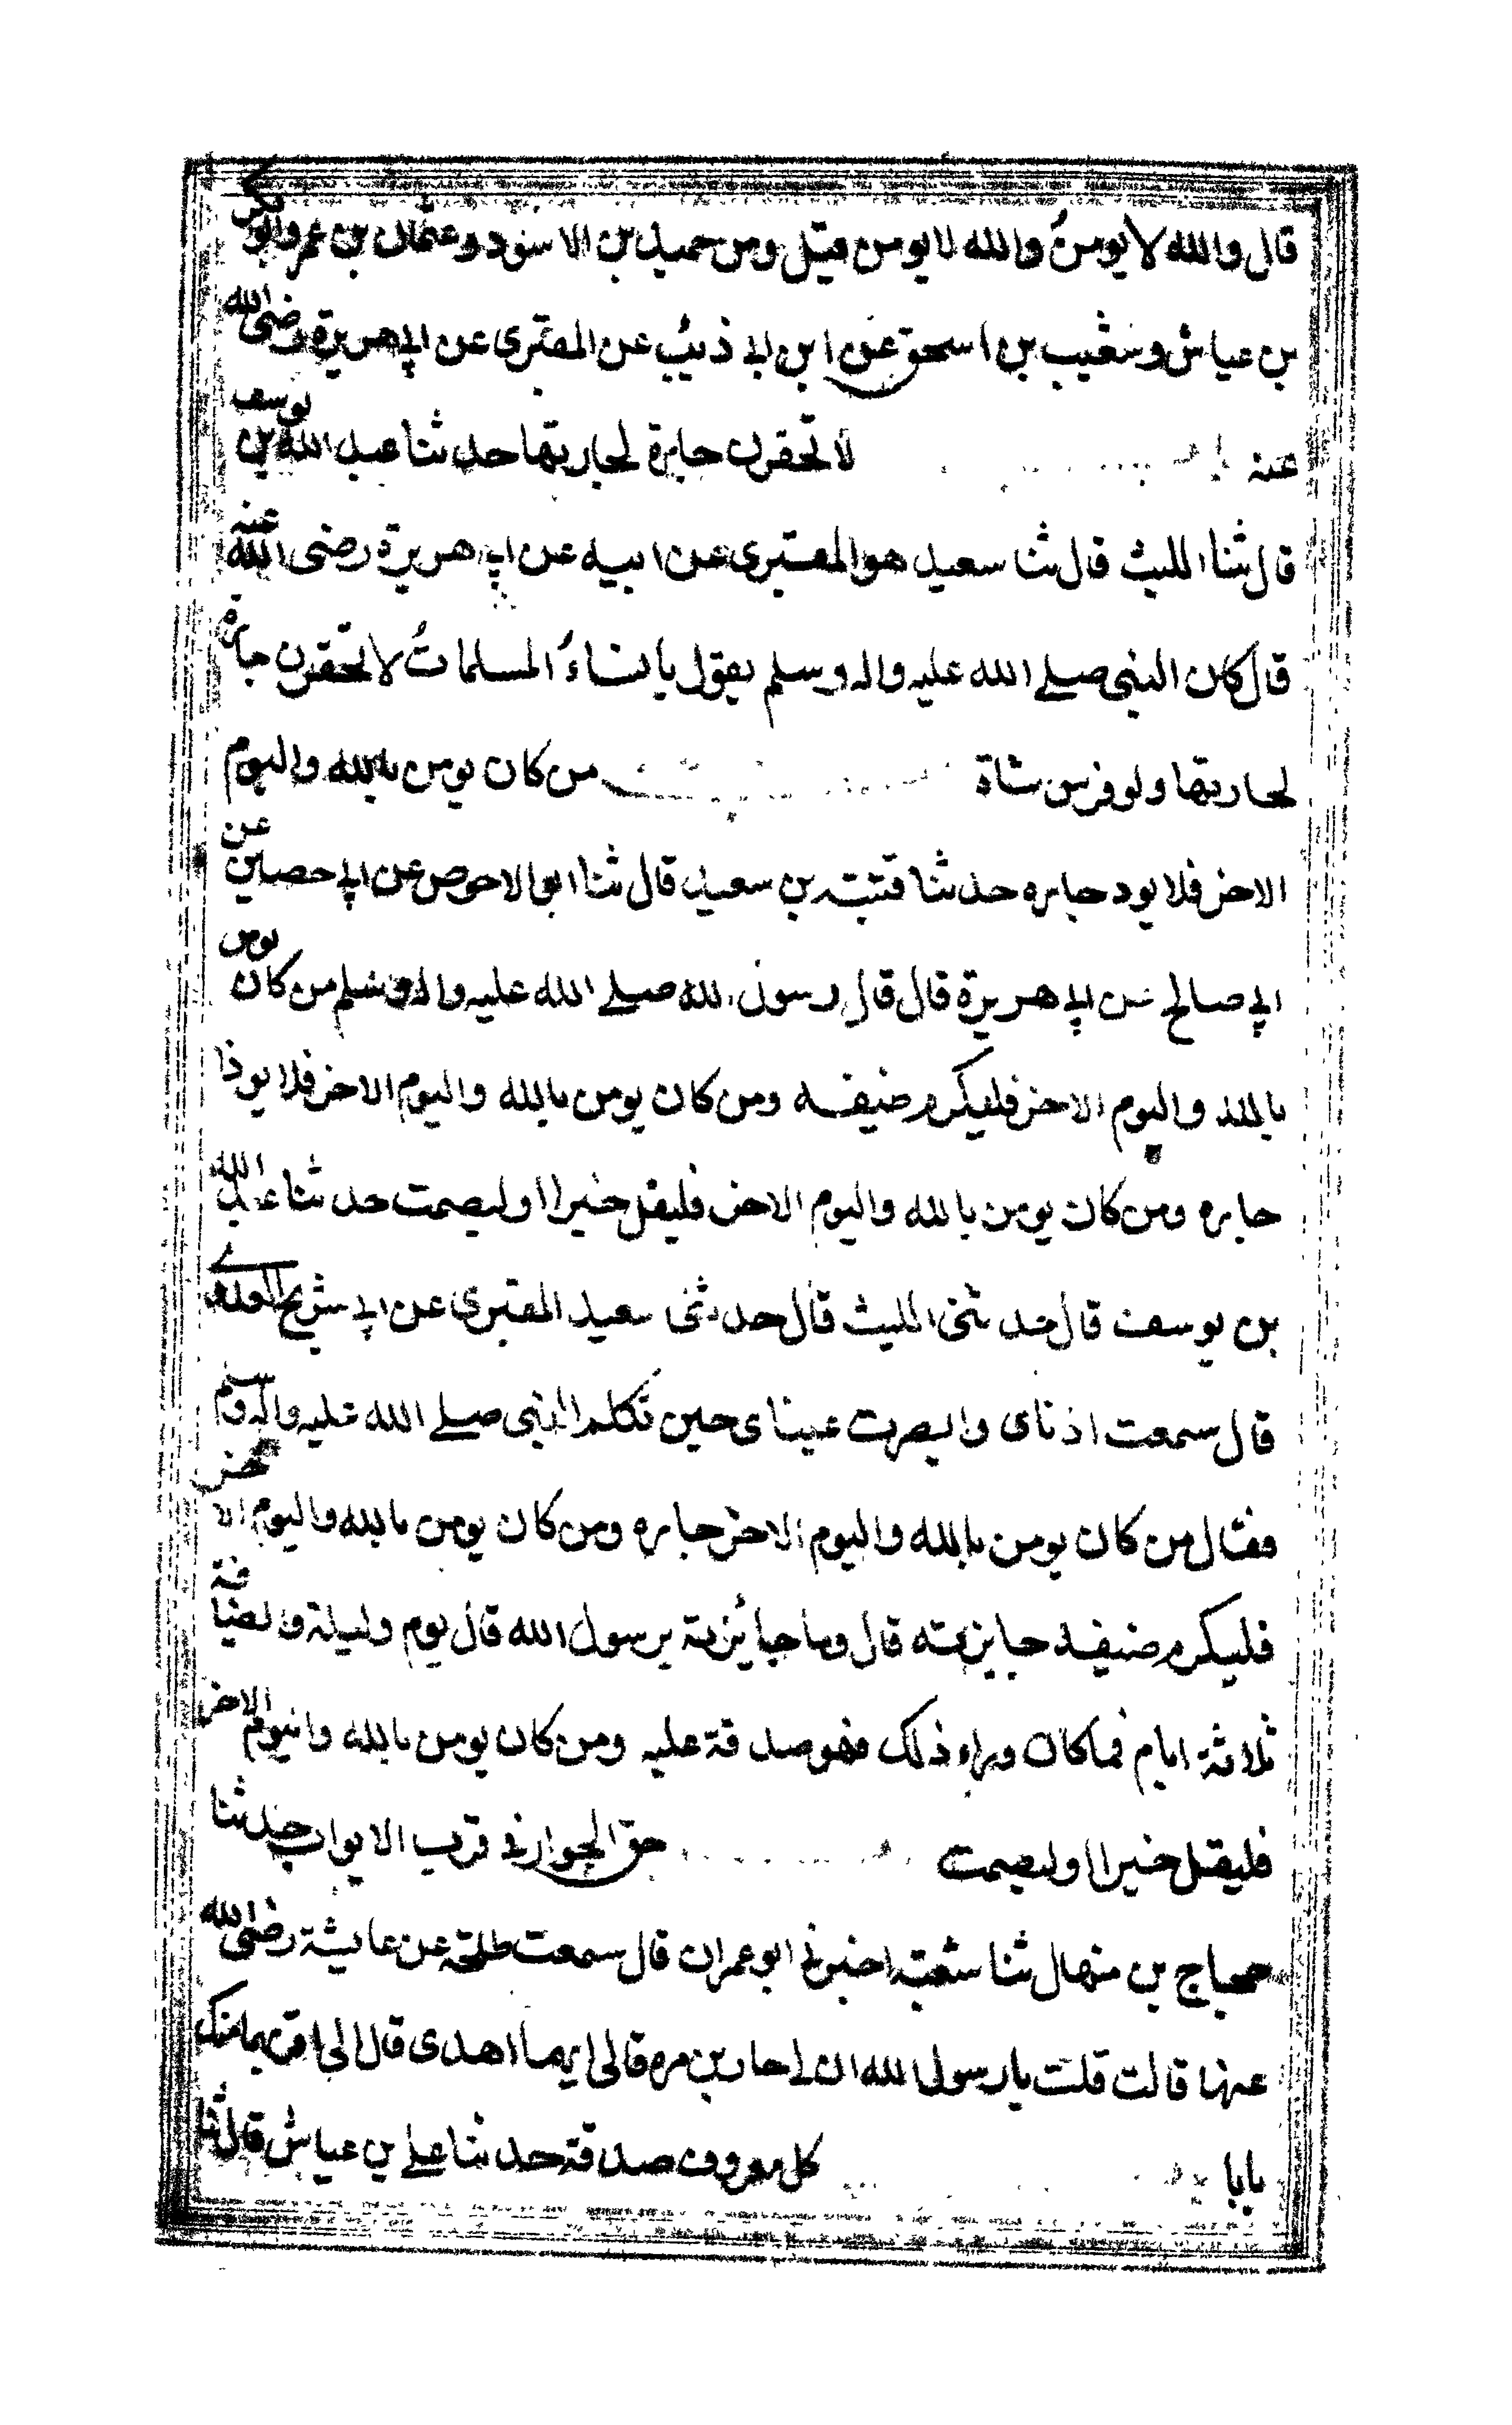 قال والله لا يومن والله لا يومن قيل ومن حميد بن الاسود وعثمان بن عمر وابو بكر
بن عياش وشعيب بن اسحق عن ابن ابي ذئب عن المقبرى عن ابي هريرة رضى الله
عنه لا تحقرن جارة لجارتها حدثنا عبد الله بن يوسف
قال ثنا الليث قال ثنا سعيد هو المقبرى عن ابيه عن ابي هريرة رضى الله عنه
قال كان النبى صلے الله عليه واله وسلم يقول يا نساءُ المسلمات لا تحقرن جارة
لجارتها ولو فرسن شاة من كان يومن بالله واليوم
الاخر فلا يوذ جاره حدثنا قتيبته بن سعيد قال ثنا ابو الاحوص عن ابي حصين عن
ابي صالح عن ابي هريرة قال قال رسول الله صلے الله عليه واله وسلم من كان يومن
بالله واليوم الاخر فليكرم ضيفه ومن كان يومن بالله واليوم الاخر فلا يوذ
جاره ومن كان يومن بالله واليوم الاخر فليقل خيرا اوليصمت حدثنا عبد الله
بن يوسف قال حدثنى الليث قال حدثنى سعيد المقبرى عن ابي شريح العدوے
قال سمعت اذناى وابصرت عيناى حين تكلم النبى صلے الله عليه واله وسلم
فقال من كان يومن بالله واليوم الاخر جاره ومن كان يومن بالله واليوم الاخر
فليكرم ضيفه جايزته قال وما جايزته يرسول الله قال يوم وليلة والضيافة
ثلاثة ايام فما كان وراء ذلك فهو صدقة عليه ومن كان يومن بالله واليوم الاخر
فليقل خيرا اوليصمت حق الجوار فى قرب الابواب حدثنا
حجاج بن منهال ثنا شعبته اخبرنى ابو عمران قال سمعت طلحة عن عايشة رضى الله
عنها قالت قلت يا رسول الله ان لى جارين مره قالى ايهما اهدى قال الى اقربهما منك
بابا كل معروف صدقة حدثنا علے بن عياش قال ثنا